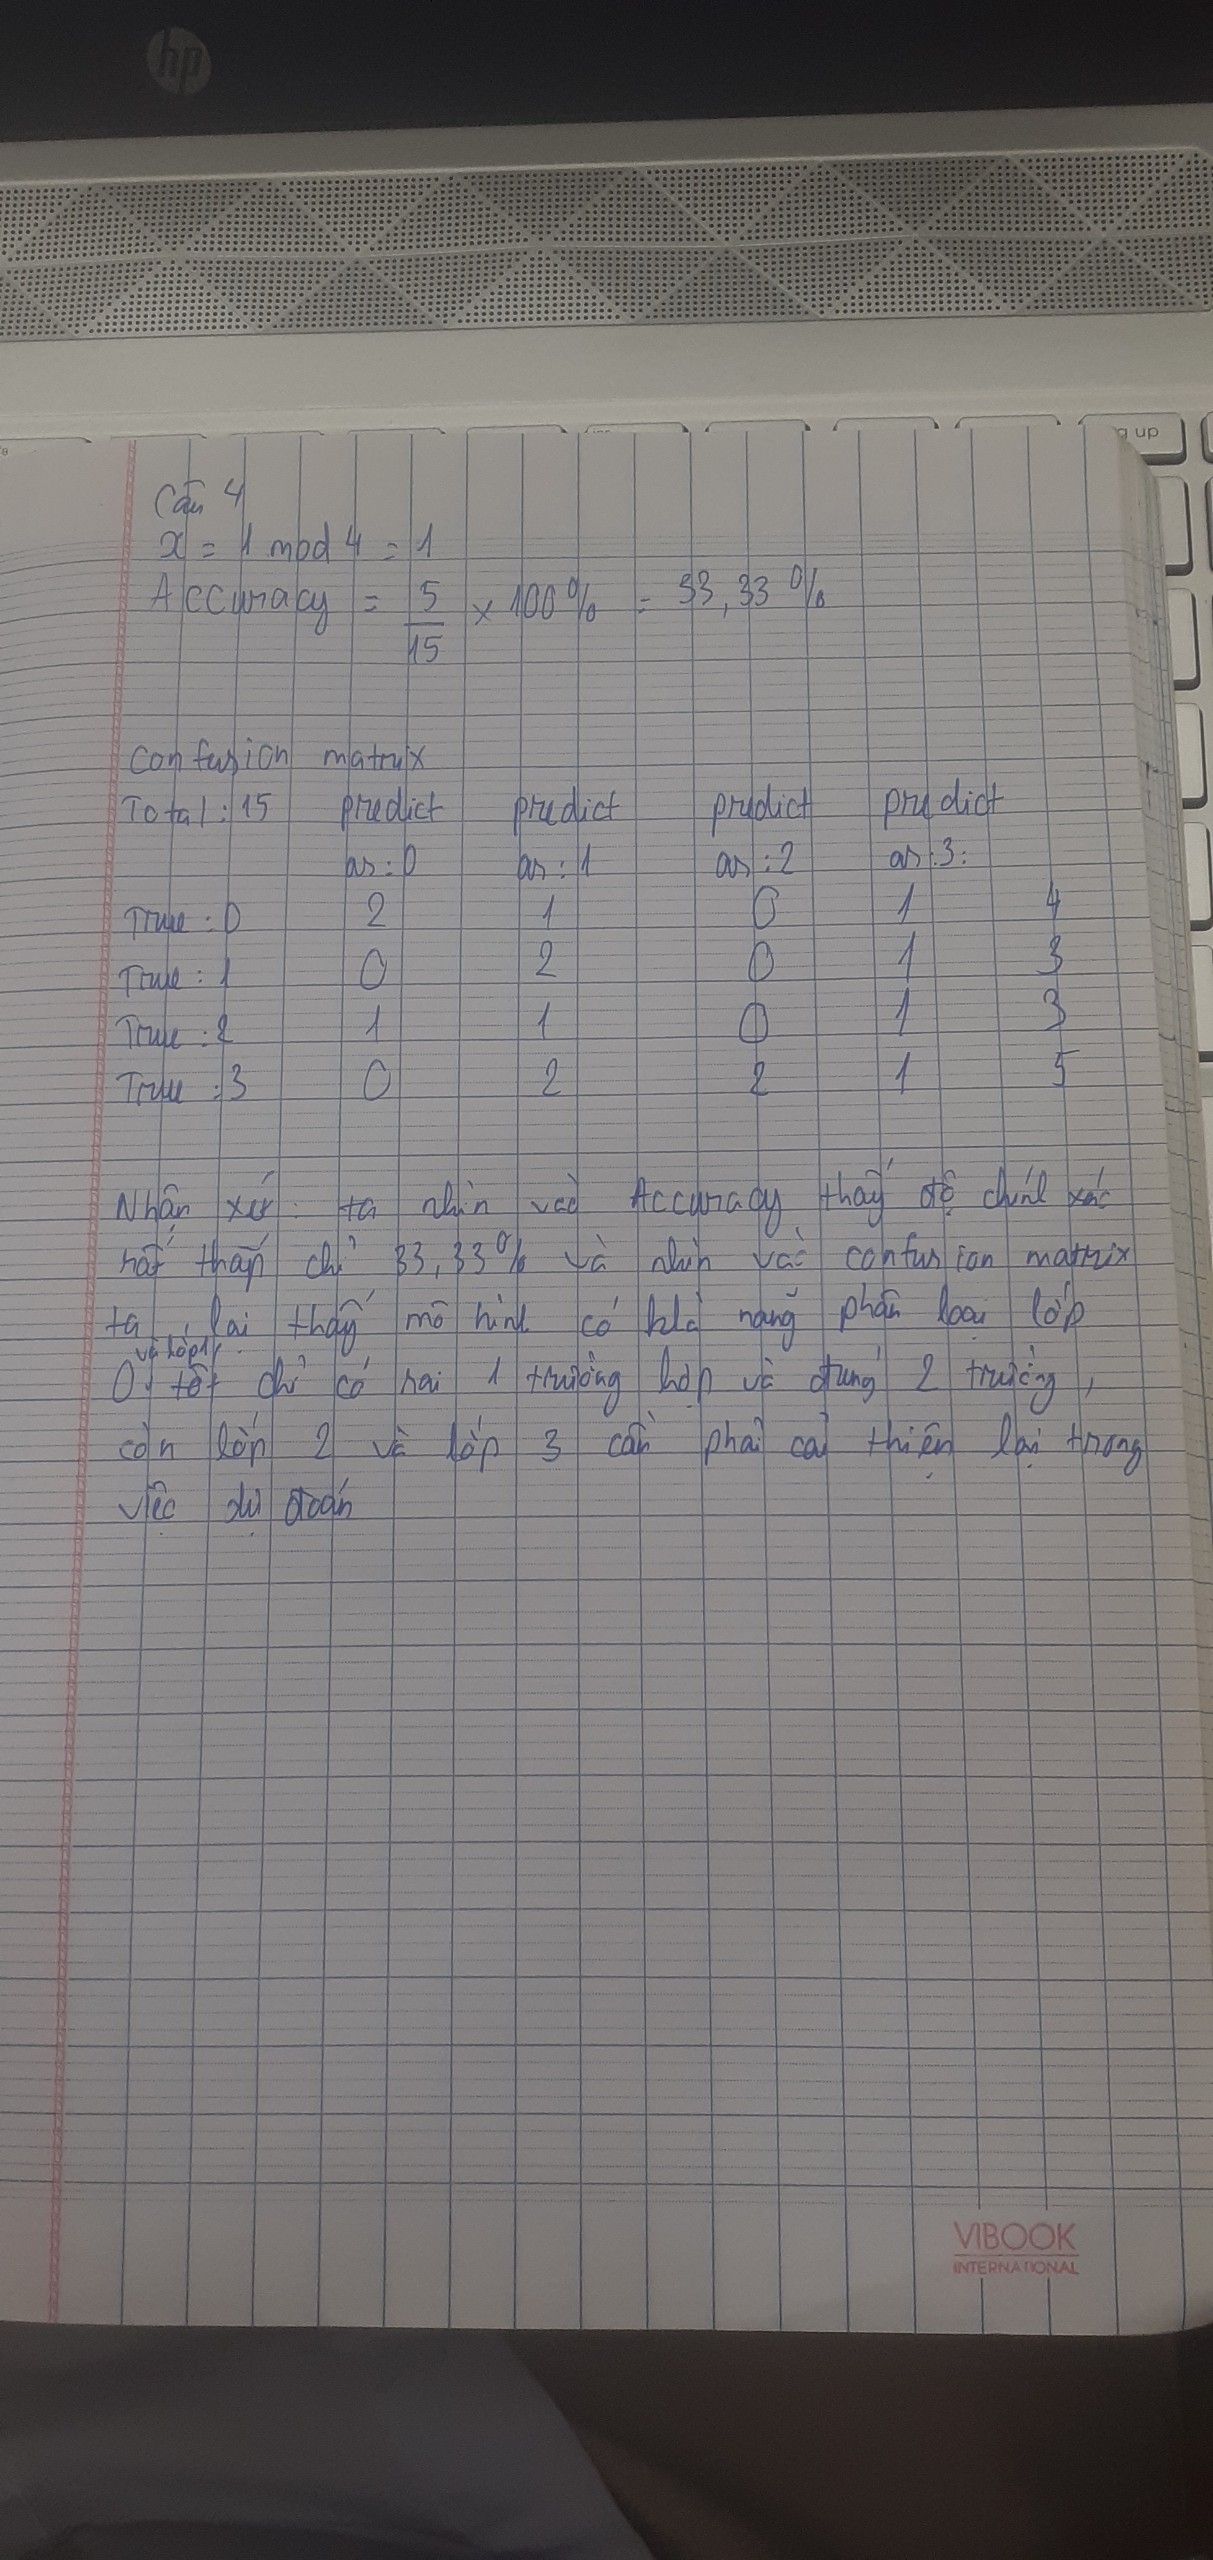 hp
g up
Câu 4
x = 1 mod 4 = 1
Accuracy = 5/15 x 100% = 33,33%
Confusion matrix
Total: 15 predict predict predict predict
as: 0 as: 1 as: 2 as: 3:
True: 0 2 1 0 1 4
True: 1 0 2 0 1 3
True: 2 1 1 0 1 3
True: 3 0 2 2 1 5
Nhận xét: ta nhìn vào Accuracy thấy độ chính xác
rất thấp chỉ 33,33% và nhìn vào confusion matrix
ta lại thấy mô hình có khả năng phân loại lớp
và lớp 1
0 tốt chỉ có hai 1 trường hợp và đúng 2 trường,
còn lớp 2 và lớp 3 cần phải cải thiện lại trong
việc dự đoán
VIBOOK
INTERNATIONAL